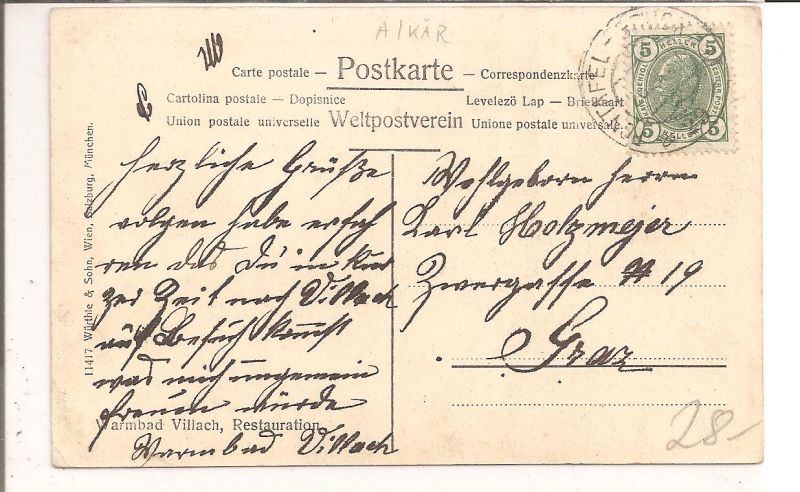 A/KÄR
Carte postale — Postkarte — Correspondenzkarte
Cartolina postale — Dopisnice Levelezö Lap — Briefkaart
Union postale universelle Weltpostverein Unione postale universale
5 HELLER 5
5 HELLER 5
11417 Würthle & Sohn, Wien, Salzburg, München.
Herzliche Grüße
folgen habe erfah
ren das Du in kur
zer Zeit nach Villach
auf Besuch kommst
was mich ungemein
freuen würde
Warmbad Villach, Restauration
Warmbad Villach
Wohlgeborn Herrn
Karl Holzmejer
Zwergasse # 19
Graz
28-